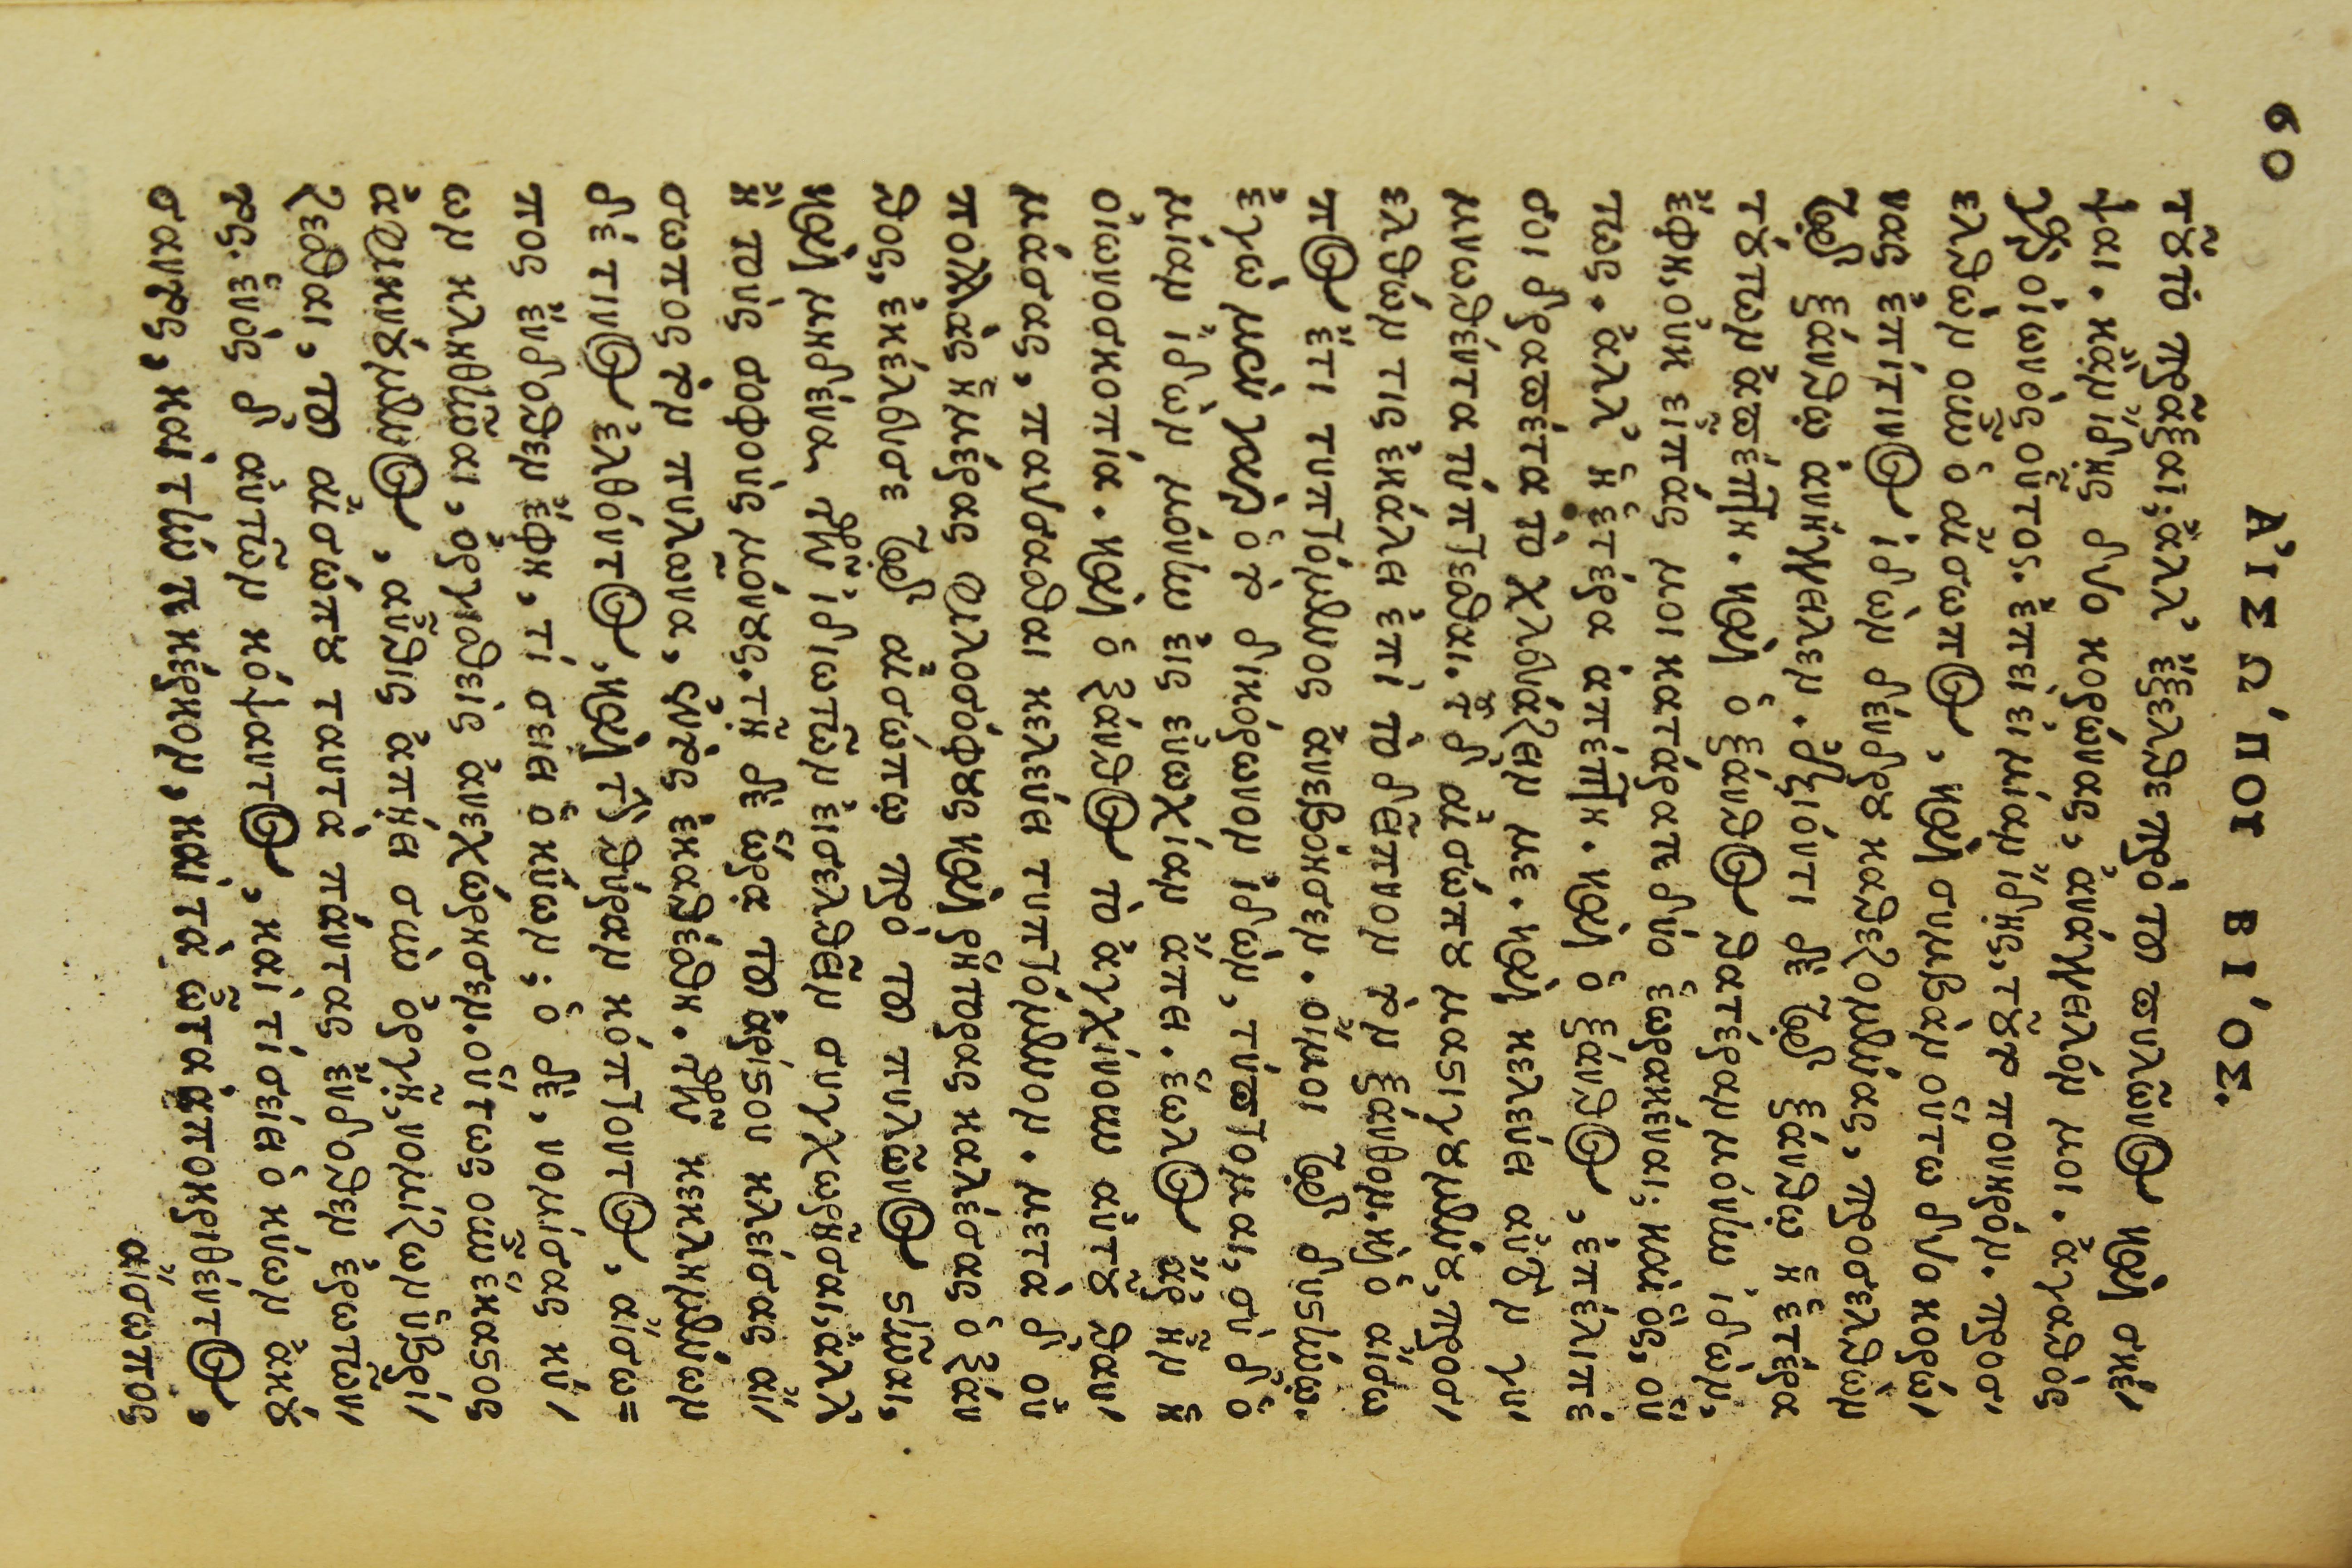 60 ΑἸΣΩ'ΠΟΥ ΒΙ'ΟΣ.
τȣ̃το πρᾶξαι; ἀλλ' ἔξελθε πρὸ τοῦ πυλῶνος καὶ σκέ-
ψαι. κἂν ἴδῃς δύο κορώνας, ἀνάγγειλόν μοι. ἀγαθὸς
γὰρ οἰωνὸς οὗτος. ἐπεὶ εἰ μίαν ἴδῃς, τοῦτο πονηρόν. προσ-
ελθὼν οὖν ὁ αἴσωπος, καὶ συμβὰν οὕτω δύο κορώ-
νας ἐπίτινος ἰδὼν δένδρου καθεζομένας, προσελθὼν
τῷ ξάνθῳ ἀνήγγειλεν. ἐξιόντι δὲ τῷ ξάνθῳ ἡ ἑτέρα
τούτων ἀπέπτη. καὶ ὁ ξάνθος θατέραν μόνην ἰδὼν,
ἔφη, οὐκ εἶπάς μοι κατάρατε δύο ἑωρακέναι; καὶ ὃς, οὕ
πως. ἀλλ' ἡ ἑτέρα ἀπέπτη. καὶ ὁ ξάνθος, ἐπέλιπέ
σοι δραπέτα τὸ χλευάζειν με. καὶ κελεύει αὐτὸν γυ-
μνωθέντα τύπτεσθαι. τοῦ δ' αἰσώπου μαστιγουμένου, προσ-
ελθών τις ἐκάλει ἐπὶ τὸ δεῖπνον τὸν ξάνθον. καὶ ὁ αἴσω
πος ἔτι τυπτόμενος ἀνεβόησεν. οἴμοι τῷ δυστήνῳ.
ἐγὼ μὲν γὰρ ὁ τὸ δικόρωνον ἰδὼν, τύπτομαι, σὺ δ' ὁ
μίαν ἰδὼν μόνην εἰς εὐωχίαν ἄπει. ἕωλος ἄρ' ἦν ἡ
οἰωνοσκοπία. καὶ ὁ ξάνθος τὸ ἀγχίνουν αὐτοῦ θαυ-
μάσας, παύσασθαι κελεύει τυπτόμενον. μετὰ δ' οὐ
πολλὰς ἡμέρας φιλοσόφους καὶ ῥήτορας καλέσας ὁ ξάν
θος, ἐκέλευσε τῷ αἰσώπῳ πρὸ τοῦ πυλῶνος στῆναι,
καὶ μηδένα τῶν ἰδιωτῶν εἰσελθεῖν συγχωρῆσαι, ἀλλ'
ἢ τοὺς σοφοὺς μόνους. τῇ δὲ ὥρᾳ τοῦ ἀρίστου κλείσας αἴ-
σωπος τὸν πυλῶνα, ἐντὸς ἐκαθέσθη. τῶν κεκλημένων
δέ τινος ἐλθόντος, καὶ τὴν θύραν κόπτοντος, αἴσω=
πος ἔνδοθεν ἔφη, τί σείει ὁ κύων; ὁ δὲ, νομίσας κύ-
ων κληθῆναι, ὀργισθεὶς ἀνεχώρησεν. οὕτως οὖν ἕκαστος
ἀφικνούμενος, αὖθις ἀπῄει σὺν ὀργῇ, νομίζων ὑβρί-
ζεσθαι, τοῦ αἰσώπου ταὐτὰ πάντας ἔνδοθεν ἐρωτῶν-
τος. ἑνὸς δ' αὐτῶν κόψαντος, καὶ τί σείει ὁ κύων ἀκού
σαντος, καὶ τὴν τε κέρκον, καὶ τὰ ὦτα ἀποκριθέντος,
αἴσωπος